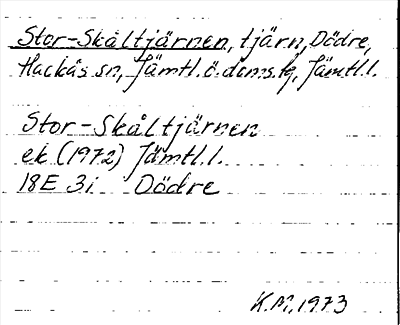 Stor-Skåltjärnen, tjärn, Dödre,
Hackås sn, Jämtl. ö. doms. tg, Jämtl. l.
Stor-Skåltjärnen
ek (1972) Jämtl. l.
18E 3i Dödre
K.M. 1973